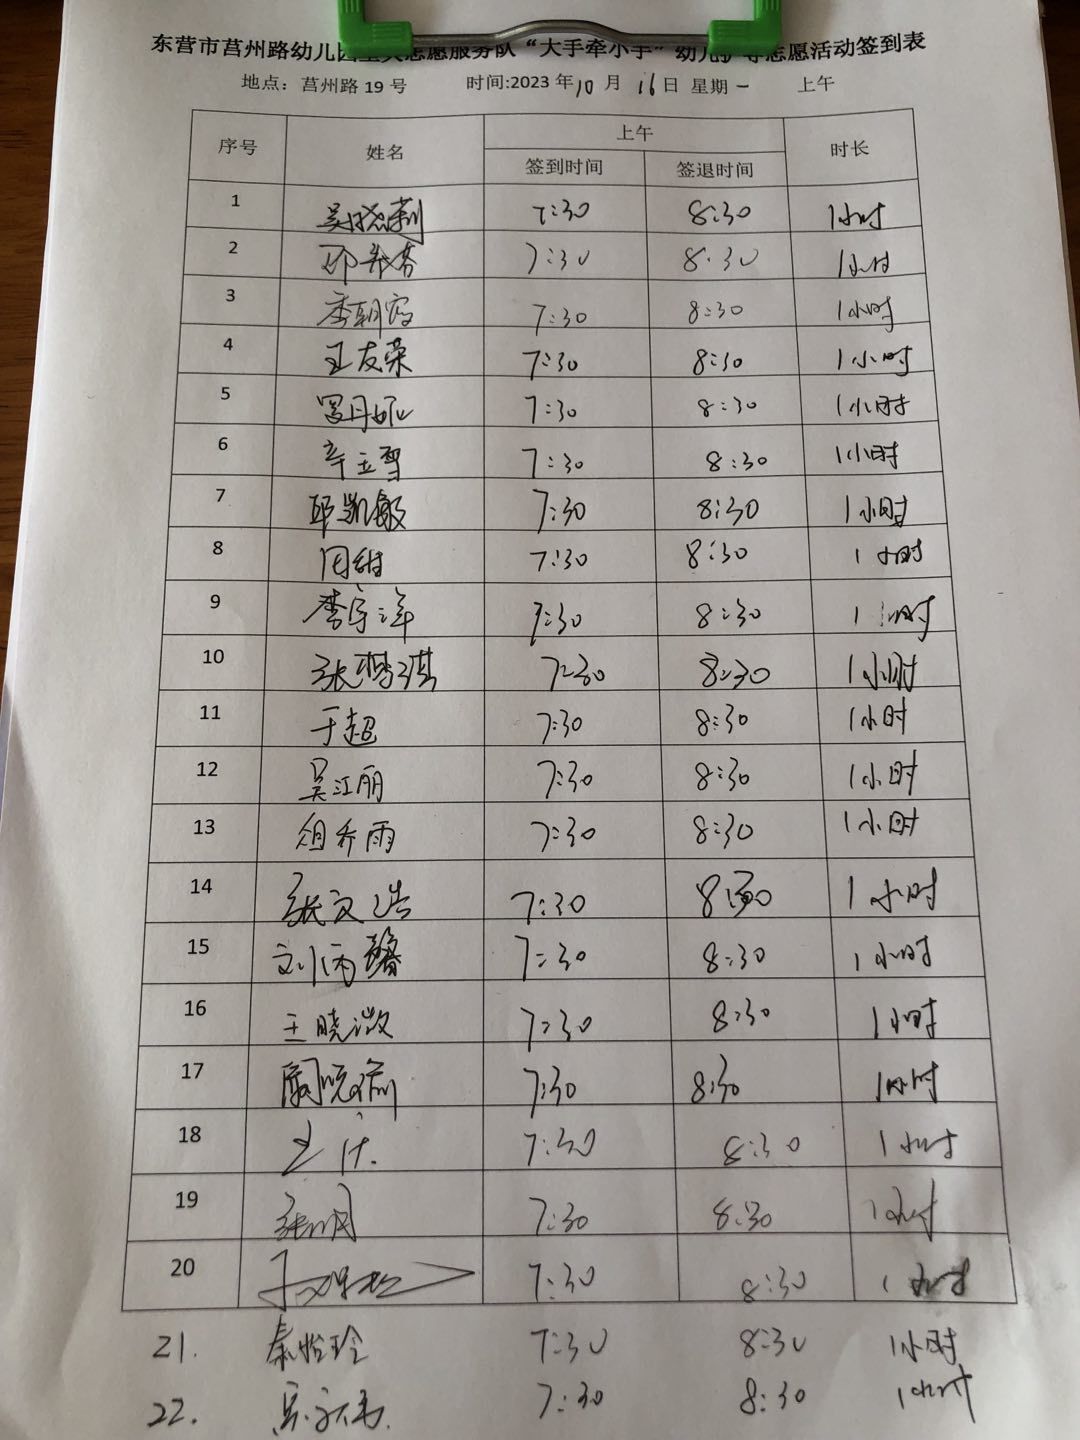 东营市莒州路幼儿园 志愿服务队“大手牵小手”幼儿 志愿活动签到表
地点：莒州路 19 号 时间:2023 年 10 月 16 日 星期 一 上午
序号 姓名 上午 时长
签到时间 签退时间
1 吴晓莉 7:30 8:30 1小时
2 7:30 8:30 1小时
3 李朝霞 7:30 8:30 1小时
4 王友荣 7:30 8:30 1小时
5 7:30 8:30 1小时
6 辛玉雪 7:30 8:30 1小时
7 邱凯敏 7:30 8:30 1小时
8 田甜 7:30 8:30 1小时
9 李宗洋 7:30 8:30 1小时
10 7:30 8:30 1小时
11 于超 7:30 8:30 1小时
12 吴江丽 7:30 8:30 1小时
13 乔雨 7:30 8:30 1小时
14 张文浩 7:30 8:30 1小时
15 刘丙馨 7:30 8:30 1小时
16 王晓 7:30 8:30 1小时
17 7:30 8:30 1小时
18 7:30 8:30 1小时
19 张 7:30 8:30 1小时
20 7:30 8:30 1小时
21. 秦怡玲 7:30 8:30 1小时
22. 7:30 8:30 1小时